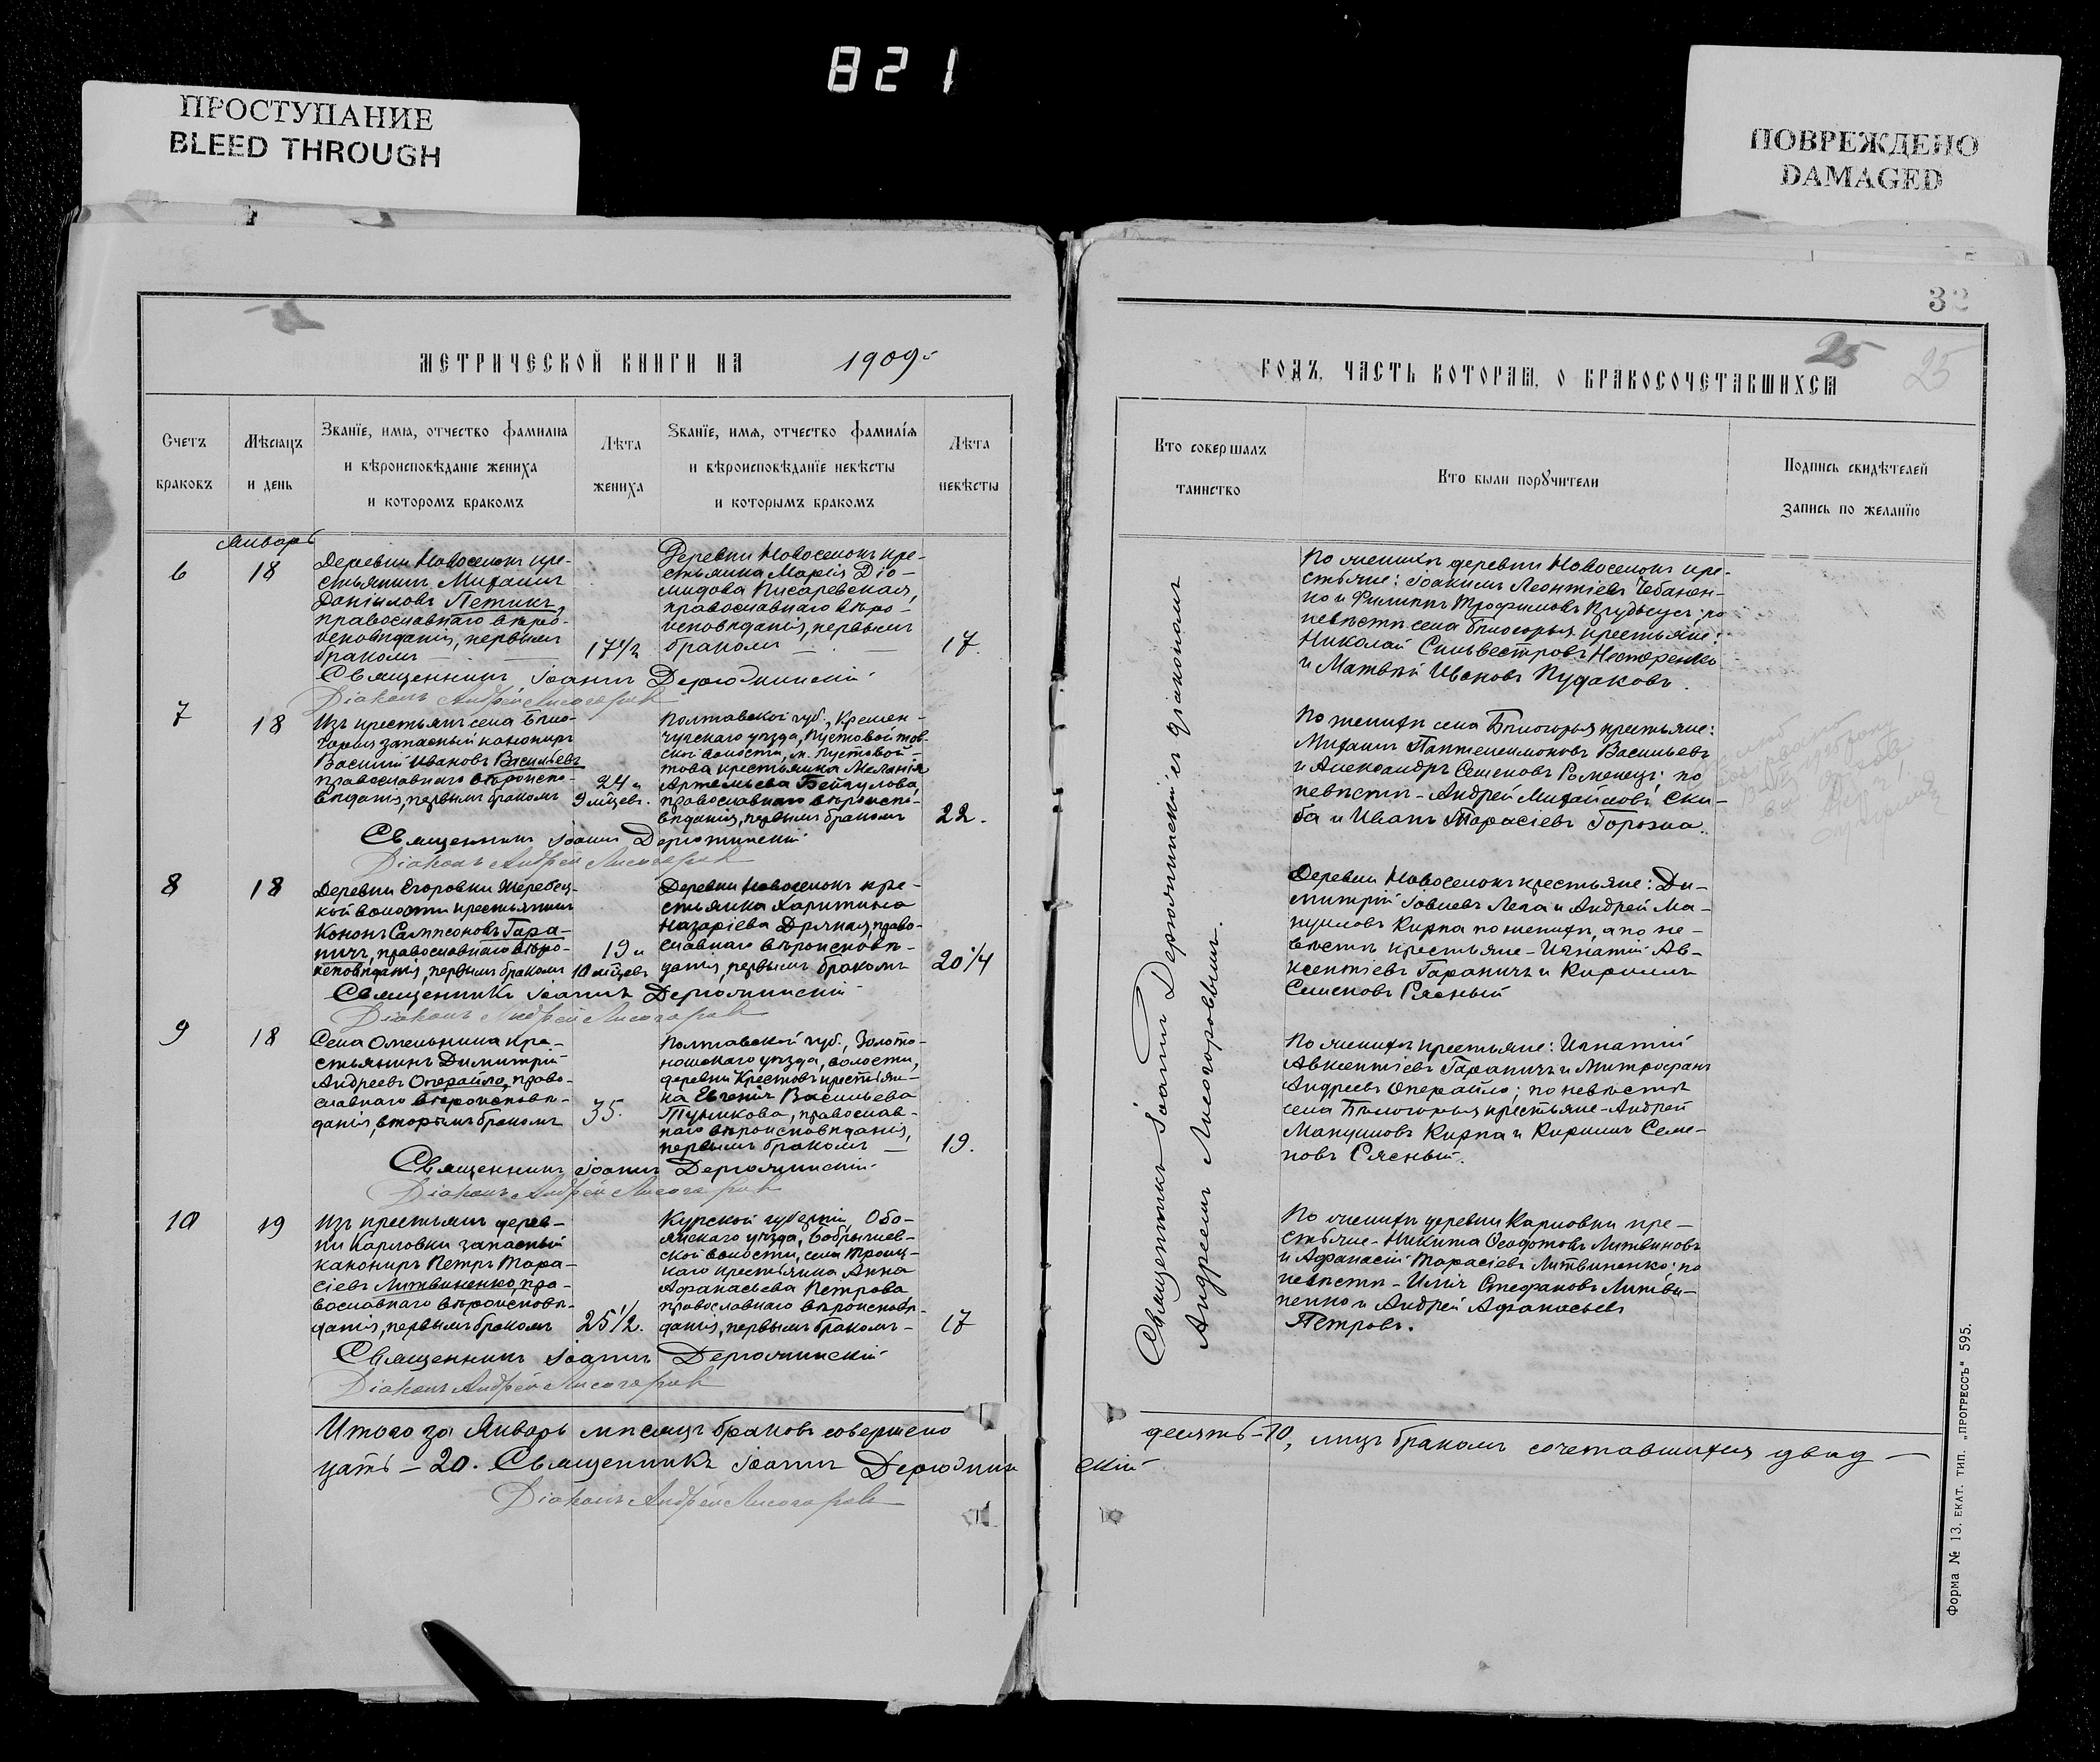 821
ПРОСТУПАНИЕ
BLEED THROUGH
ПОВРЕЖДЕНО
DAMAGED
МЕТРИЧЕСКОЙ КНИГИ НА 1909й
Счетъ браковъ
Мѣсяцъ и день
Званїе, имя, отчество фамилїя
и вѣроисповѣданїе жениха
и которомъ бракомъ
Лѣта жениха
Званїе, имя, отчество фамилїя
и вѣроисповѣданїе невѣсты
и которымъ бракомъ
Лѣта невѣсты
Январь
6
18
Деревни Новоселокъ кре-
стьянинъ Михаилъ
Данiиловъ Петикъ,
православнаго вѣро-
исповѣданiя, первымъ
бракомъ
17 1/2
Деревни Новоселокъ кре-
стьянка Марiя Дiо-
мидова Писаревская,
православнаго вѣро-
исповѣданiя, первымъ
бракомъ
17.
Священникъ Iоаннъ Дерюжинскiй
Дiаконъ Андрей Лисогоровъ
7
18
Изъ крестьянъ села Бѣло-
горья запасный канониръ
Василiй Ивановъ Васильевъ
православнаго вѣроиспо-
вѣданiя, первымъ бракомъ
24 и
9 мѣцевъ.
Полтавской губ., Кремен-
чугскаго уѣзда, Пустовойтов-
ской волости, м. Пустовой-
това крестьянка Меланiя
Артемьева Бейгулова,
православнаго вѣроиспо-
вѣданiя, первымъ бракомъ
22.
Священникъ Iоаннъ Дерюжинскiй
Дiаконъ Андрей Лисогоровъ
8
18
Деревни Егоровки Жеребец-
кой волости крестьянинъ
Кононъ Сампсоновъ Гара-
ничъ, православнаго вѣро-
исповѣданiя, первымъ бракомъ
19 и
10 мѣцевъ
Деревни Новоселокъ кре-
стьянка Харитина
Назарiева Дрячная, право-
славнаго вѣроисповѣ-
данiя, первымъ бракомъ
20 1/4
Священникъ Iоаннъ Дерюжинскiй
Дiаконъ Андрей Лисогоровъ
9
18
Села Омельника кре-
стьянинъ Димитрiй
Андреевъ Операйло, право-
славнаго вѣроисповѣ-
данiя, вторымъ бракомъ
35.
Полтавской губ., Золото-
ношскаго уѣзда, волости,
деревни Крестовъ крестьян-
ка Евгенiя Васильева
православ-
наго вѣроисповѣданiя,
первымъ бракомъ
19.
Священникъ Iоаннъ Дерюжинскiй
Дiаконъ Андрей Лисогоровъ
10
19
Изъ крестьянъ дерев-
ни Карловки запасный
канониръ Петръ Тара-
сiевъ Литвиненко, пра-
вославнаго вѣроисповѣ-
данiя, первымъ бракомъ
25 1/2.
Курской губернiи, Обо-
янскаго уѣзда, Бобрышев-
ской волости, села Троиц-
каго крестьянка Анна
Афанасьева Петрова
православнаго вѣроисповѣ-
данiя, первымъ бракомъ
17
Священникъ Iоаннъ Дерюжинскiй
Дiаконъ Андрей Лисогоровъ
Итого за Январь мѣсяцъ браковъ совершено
цать – 20. Священникъ Iоаннъ Дерюжин
Дiаконъ Андрей Лисогоровъ
32
25
25
ГОДЪ, ЧАСТЬ ВТОРАЯ, О БРАКОСОЧЕТАВШИХСЯ
Кто совершалъ
таинство
Кто были порꙋчители
Подпись свидѣтелей
запись по желанїю
Священникъ Iоаннъ Дерюжинскiй съ дiакономъ
Андреемъ Лисогоровымъ.
По женихѣ деревни Новоселокъ кре-
стьяне: Iоакимъ Леонтiевъ Чебанен-
ко и Филиппъ Трофимовъ по
невѣстѣ села Бѣлогорья крестьяне:
Николай Сильвестровъ Нестеренко
и Матвѣй Ивановъ Пудаковъ.
По женихѣ села Бѣлогорья крестьяне:
Михаилъ Пантелеимоновъ Васильевъ
и Александръ Семеновъ Роменецъ; по
невѣстѣ – Андрей Михайловъ Ски-
ба и Иванъ Тарасiевъ Горозна.
Деревни Новоселокъ крестьяне: Ди-
митрiй Iовлевъ Лега и Андрей Ма-
нуиловъ Кирпа по женихѣ, а по не-
вѣстѣ крестьяне – Игнатiй Ав-
ксентiевъ Гараничъ и Кириллъ
Семеновъ Рясный
По женихѣ крестьяне: Игнатiй
Авксентiевъ Гараничъ и Митрофанъ
Андреевъ Операйло; по невѣстѣ
села Бѣлогорья крестьяне – Андрей
Мануиловъ Кирпа и Кириллъ Семе-
новъ Рясный.
По женихѣ деревни Карловки кре-
стьяне – Никита Ѳеодотовъ Литвиновъ
и Афанасiй Тарасiевъ Литвиненко; по
невѣстѣ – Илiя Стефановъ Литви-
ненко и Андрей Афанасьевъ
Петровъ.
десять – 10, лицъ бракомъ сочетавшихся двад-
скiй
Форма № 13. ЕКАТ. ТИП. „ПРОГРЕССЪ“ 595.